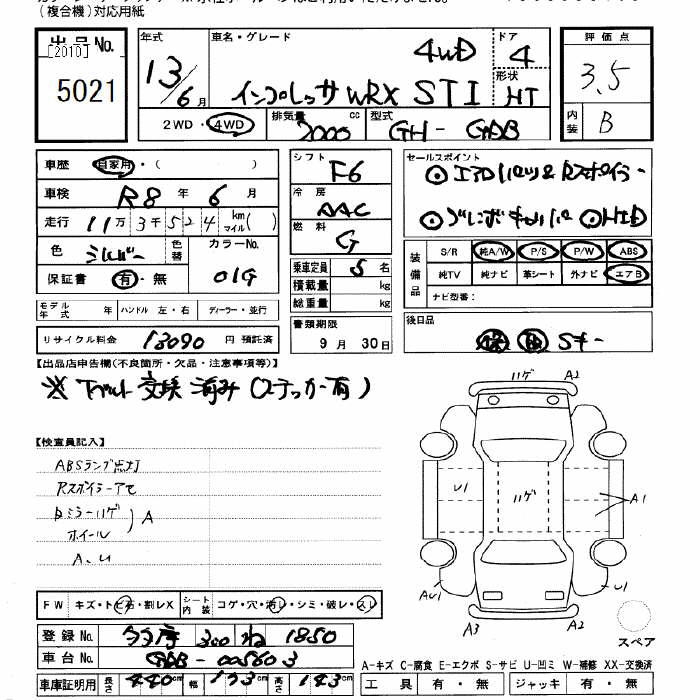 (複合機)対応用紙
出品No.
[2010]
5021
年式
13/6月
車名・グレード
4WD
インプレッサ WRX STI
ドア
4
形状
HT
評価点
3.5
内装
B
2WD・4WD
排気量
2000 cc
型式
GH-GDB
車歴
自家用・( )
車検
R8年6月
走行
11万3千524km マイル( )
色
シルバー
色替
カラーNo.
01G
保証書
有・無
モデル年式 年
ハンドル 左・右
ディーラー・並行
リサイクル料金
13090 円 預託済
シフト
F6
冷房
AAC
燃料
G
乗車定員 5名
積載量 kg
総重量 kg
書類期限
9月30日
セールスポイント
◎エアロバンパー&Rスポイラー
◎ブレンボキャリパー ◎HID
装備品
S/R 純A/W P/S P/W ABS
純TV 純ナビ 革シート 外ナビ エアB
ナビ型番:
後日品
保 取 Sキー
【出品店申告欄(不良箇所・欠品・注意事項等)】
※Tベルト交換済み(ステッカー有)
【検査員記入】
ABSランプ点灯
Rスポイラーアセ
ミラーハゲ
ホイール
A
A、U
FW キズ・トビ石・割レX
シート内装 コゲ・穴・汚レ・シミ・破レ・スレ
登録No.
300 1850
車台No.
GDB-005603
車庫証明用 長さ 440cm 幅 173cm 高さ 143cm
ハゲ A2
U1 ハゲ A1
AU1 U1
A3 A2
スペア
A-キズ C-腐食 E-エクボ S-サビ U-凹ミ W-補修 XX-交換済
工具 有・無 ジャッキ 有・無